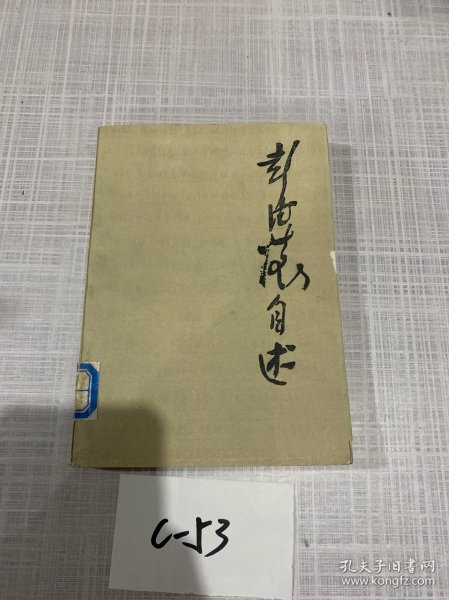 彭德怀自述
C-53
孔夫子旧书网
www.kongfz.com